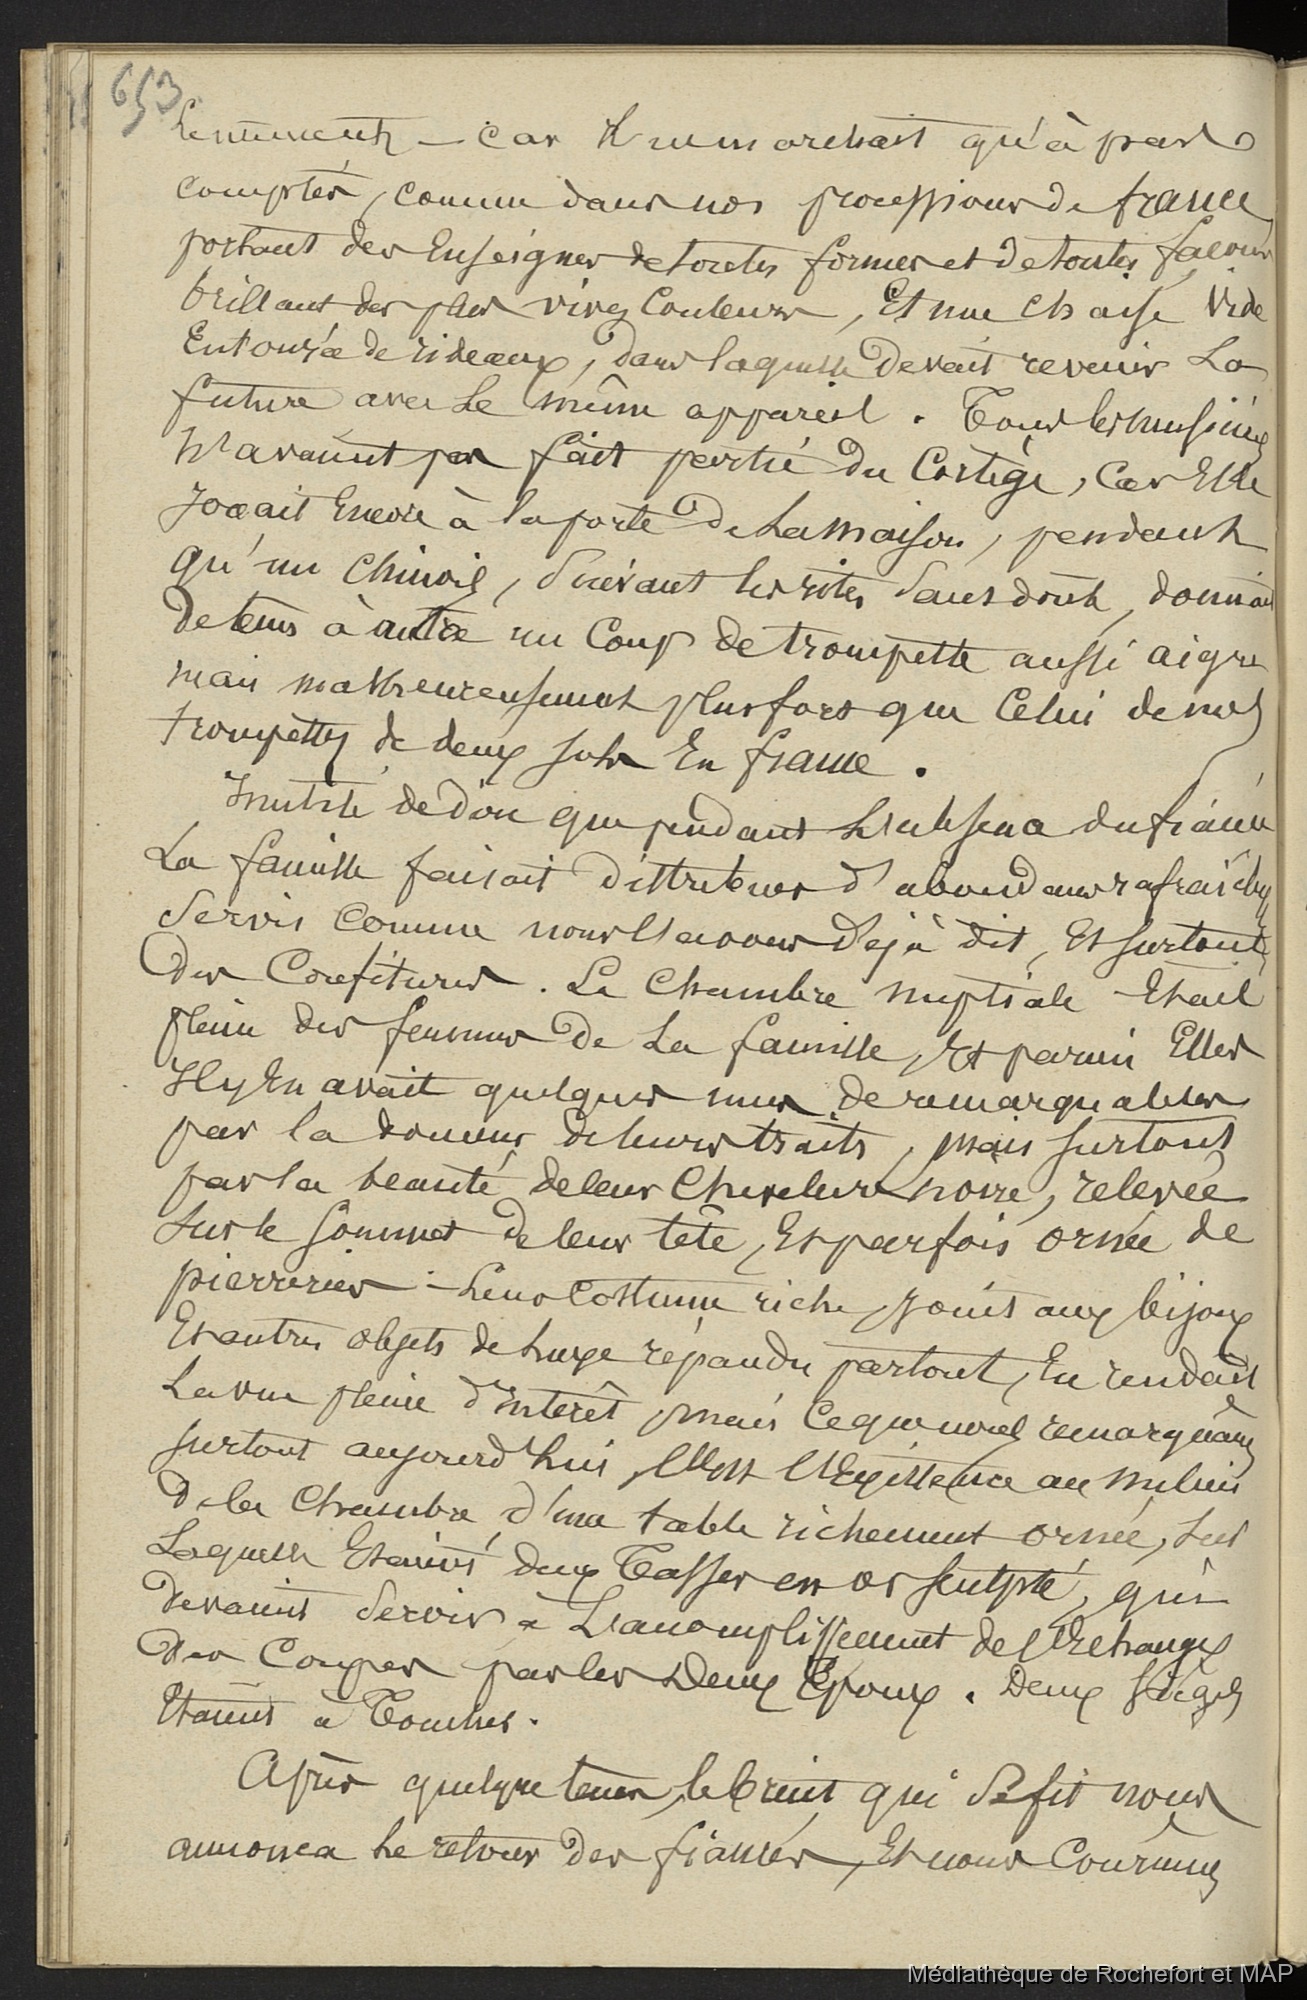 653
lentement — car il ne marchait qu'à pas
comptés, comme dans nos processions de france
portant des Enseignes de toutes formes et de toutes façons
brillant des plus vives Couleurs, Et une Chaise vide
Entourée de rideaux, dans laquelle Devait revenir La
future avec le même appareil. Tous les musiciens
N'avaient pas fait partie du Cortège, Car Elle
jouait Encore à la porte De La Maison, pendant
qu'un Chinois, Suivant les rites Sans doute, donnait
De tems à autre un Coup de trompette aussi aigre
mais malheureusement plus fort que Celui de nos
trompettes de deux sols En france.
Inutile de Dire que pendant L'absence du fiancé
La famille faisait Distribuer d'abondans rafraîch
Servis Comme nous l'avons Déjà dit, Et surtout
Des Confitures. La Chambre nuptiale Etait
pleine des femmes De La famille, Et parmi Elles
Il y En avait quelques unes de remarquables
par la douceur de leurs traits, mais surtout
par la beauté de leur Chevelure noire, relevée
Sur le Sommet de leur tête, Et parfois ornée de
pierreries. Leur Costume riche, joint aux bijoux
Et autres objets de luxe répandu partout, En rendait
La vue pleine d'intérêt, mais Ce que nous remarquâmes
surtout aujourd'hui, C'est l'Existence au milieu
De la Chambre d'une table richement ornée, sur
Laquelle Etaient deux Tasses en or sculpté, qui
devaient Servir à L'accomplissement de l'Echange
Des Coupes par les Deux Epoux. Deux sièges
Etaient à Toucher.
Après quelque tems, le bruit qui Se fit nous
annonça Le retour Des fiancés, Et nous Courûmes
Médiathèque de Rochefort et MAP